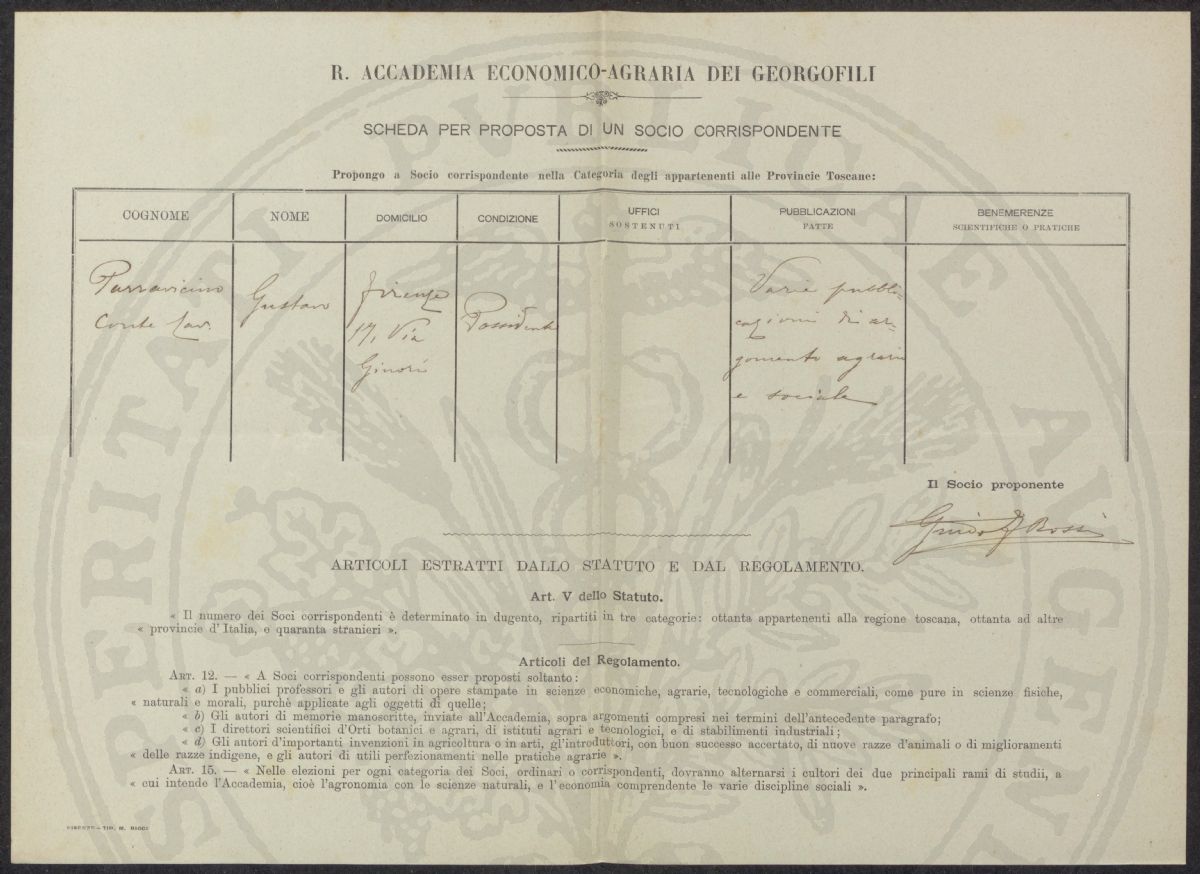 R. ACCADEMIA ECONOMICO-AGRARIA DEI GEORGOFILI
SCHEDA PER PROPOSTA DI UN SOCIO CORRISPONDENTE
Propongo a Socio corrispondente nella Categoria degli appartenenti alle Provincie Toscane:
COGNOME
NOME
DOMICILIO
CONDIZIONE
UFFICI
SOSTENUTI
PUBBLICAZIONI
FATTE
BENEMERENZE
SCIENTIFICHE O PRATICHE
Parravicino
Conte Cav.
Gustavo
Firenze
17, Via
Ginori
Possidente
Varie pubbli-
cazioni di ar-
gomento agrario
e sociale
Il Socio proponente
Guido Rossi
ARTICOLI ESTRATTI DALLO STATUTO E DAL REGOLAMENTO.
Art. V dello Statuto.
« Il numero dei Soci corrispondenti è determinato in dugento, ripartiti in tre categorie: ottanta appartenenti alla regione toscana, ottanta ad altre
« provincie d'Italia, e quaranta stranieri ».
Articoli del Regolamento.
ART. 12. — « A Soci corrispondenti possono esser proposti soltanto:
« a) I pubblici professori e gli autori di opere stampate in scienze economiche, agrarie, tecnologiche e commerciali, come pure in scienze fisiche,
« naturali e morali, purchè applicate agli oggetti di quelle;
« b) Gli autori di memorie manoscritte, inviate all'Accademia, sopra argomenti compresi nei termini dell'antecedente paragrafo;
« c) I direttori scientifici d'Orti botanici e agrari, di istituti agrari e tecnologici, e di stabilimenti industriali;
« d) Gli autori d'importanti invenzioni in agricoltura o in arti, gl'introduttori, con buon successo accertato, di nuove razze d'animali o di miglioramenti
« delle razze indigene, e gli autori di utili perfezionamenti nelle pratiche agrarie ».
ART. 15. — « Nelle elezioni per ogni categoria dei Soci, ordinari o corrispondenti, dovranno alternarsi i cultori dei due principali rami di studii, a
« cui intende l'Accademia, cioè l'agronomia con le scienze naturali, e l'economia comprendente le varie discipline sociali ».
FIRENZE - TIP. M. RICCI
SPERITATI PVBLICAE AVGEN